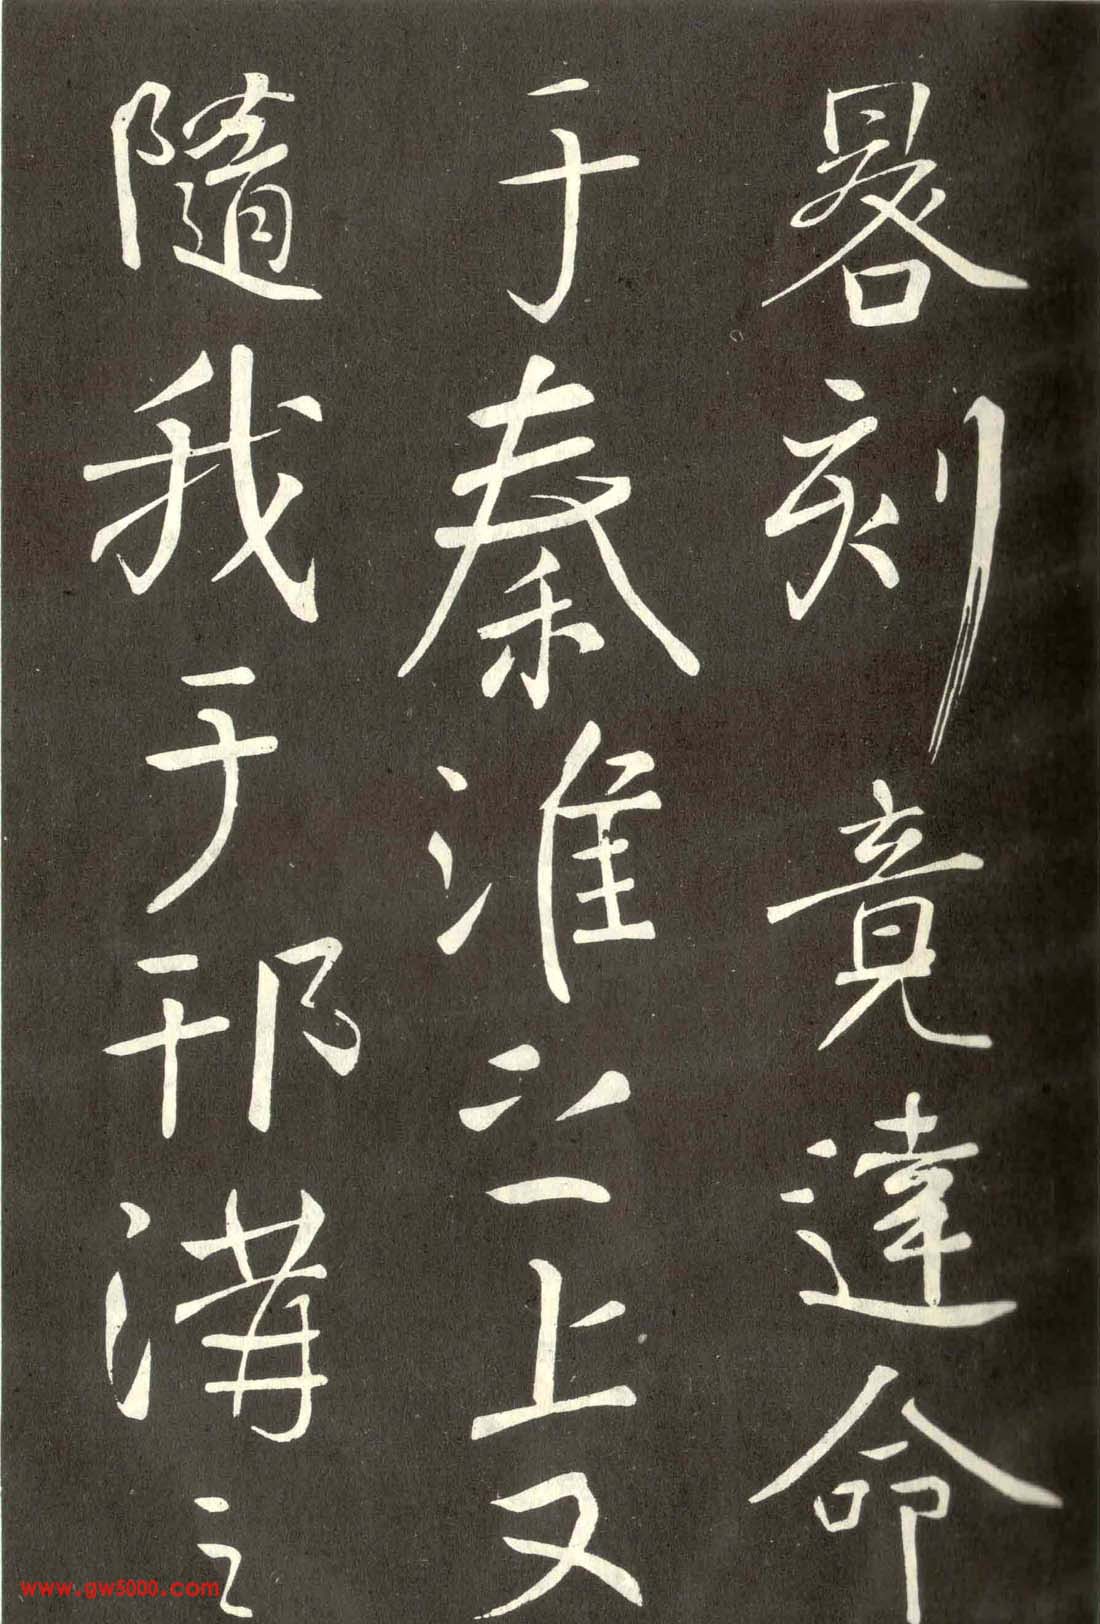 晷刻竟達命
于秦淮之上又
隨我于邗溝之
www.gw5000.com